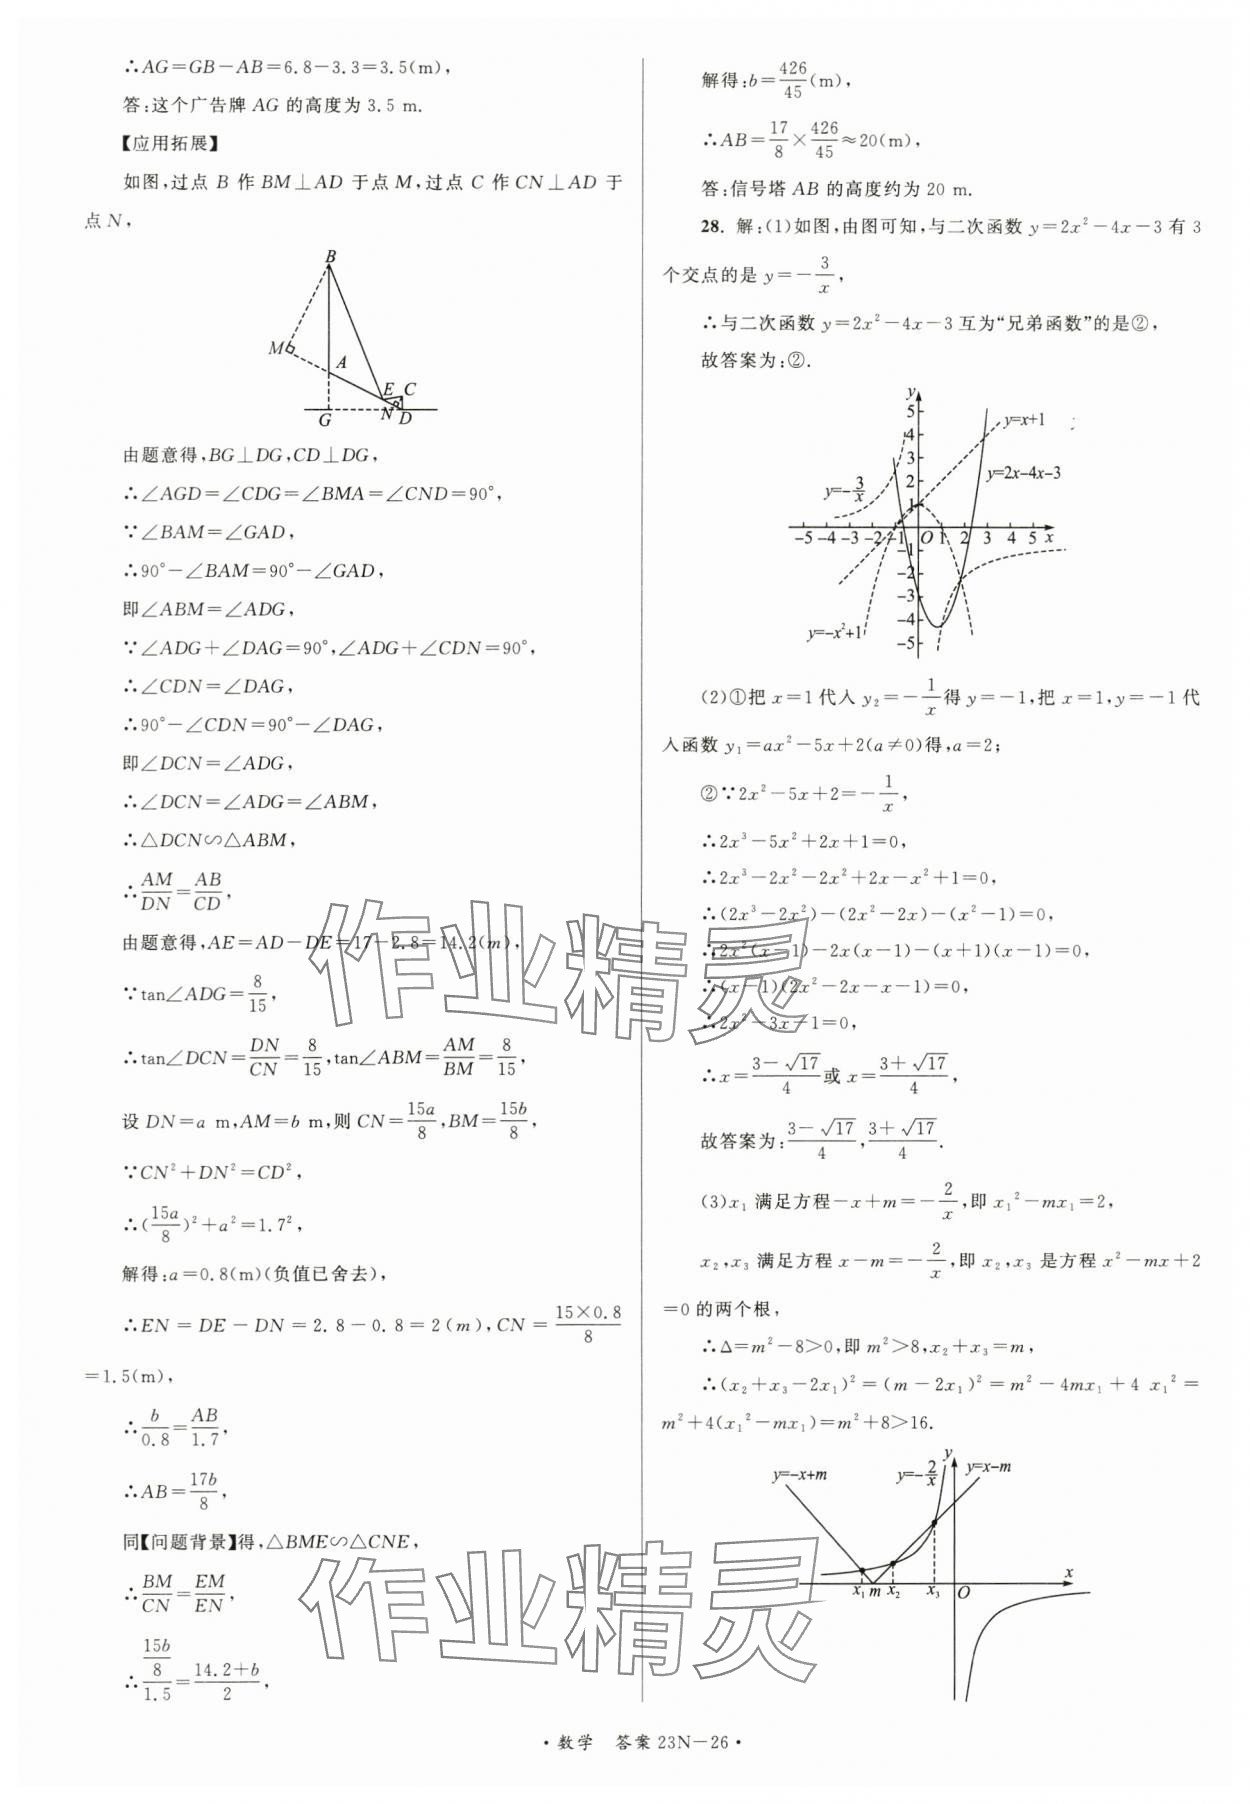 ∴AG=GB−AB=6.8−3.3=3.5(m),
答:这个广告牌 AG 的高度为 3.5 m.
【应用拓展】
如图,过点 B 作 BM⊥AD 于点 M,过点 C 作 CN⊥AD 于
点 N,
B
M
A
E
C
G
N
D
由题意得,BG⊥DG,CD⊥DG,
∴∠AGD=∠CDG=∠BMA=∠CND=90°,
∵∠BAM=∠GAD,
∴90°−∠BAM=90°−∠GAD,
即∠ABM=∠ADG,
∵∠ADG+∠DAG=90°,∠ADG+∠CDN=90°,
∴∠CDN=∠DAG,
∴90°−∠CDN=90°−∠DAG,
即∠DCN=∠ADG,
∴∠DCN=∠ADG=∠ABM,
∴△DCN∽△ABM,
∴AM/DN=AB/CD,
由题意得,AE=AD−DE=17−2.8=14.2(m),
∵tan∠ADG=8/15,
∴tan∠DCN=DN/CN=8/15,tan∠ABM=AM/BM=8/15,
设 DN=a m,AM=b m,则 CN=15a/8,BM=15b/8,
∵CN²+DN²=CD²,
∴(15a/8)²+a²=1.7²,
解得:a=0.8(m)(负值已舍去),
∴EN=DE−DN=2.8−0.8=2(m),CN=15×0.8/8
=1.5(m),
∴b/0.8=AB/1.7,
∴AB=17b/8,
同【问题背景】得,△BME∽△CNE,
∴BM/CN=EM/EN,
∴(15b/8)/1.5=(14.2+b)/2,
解得:b=426/45(m),
∴AB=17/8×426/45≈20(m),
答:信号塔 AB 的高度约为 20 m.
28. 解:(1)如图,由图可知,与二次函数 y=2x²−4x−3 有 3
个交点的是 y=−3/x,
∴与二次函数 y=2x²−4x−3 互为“兄弟函数”的是②,
故答案为:②.
y
5
4
3
2
1
y=x+1
y=2x-4x-3
y=-3/x
-5 -4 -3 -2 -1 O 1 2 3 4 5 x
-1
-2
-3
-4
-5
y=-x²+1
(2)①把 x=1 代入 y₂=−1/x得 y=−1,把 x=1,y=−1 代
入函数 y₁=ax²−5x+2(a≠0)得,a=2;
②∵2x²−5x+2=−1/x,
∴2x³−5x²+2x+1=0,
∴2x³−2x²−2x²+2x−x²+1=0,
∴(2x³−2x²)−(2x²−2x)−(x²−1)=0,
∴2x²(x−1)−2x(x−1)−(x+1)(x−1)=0,
∴(x−1)(2x²−2x−x−1)=0,
∴2x²−3x−1=0,
∴x=(3−√17)/4或 x=(3+√17)/4,
故答案为:(3−√17)/4,(3+√17)/4.
(3)x₁ 满足方程−x+m=−2/x,即 x₁²−mx₁=2,
x₂,x₃ 满足方程 x−m=−2/x,即 x₂,x₃ 是方程 x²−mx+2
=0 的两个根,
∴Δ=m²−8>0,即 m²>8,x₂+x₃=m,
∴(x₂+x₃−2x₁)²=(m−2x₁)²=m²−4mx₁+4 x₁²=
m²+4(x₁²−mx₁)=m²+8>16.
y=-x+m
y=-2/x
y
y=x-m
x₁ m x₂ x₃ O x
作业精灵
作业精灵
·数学 答案 23N—26·